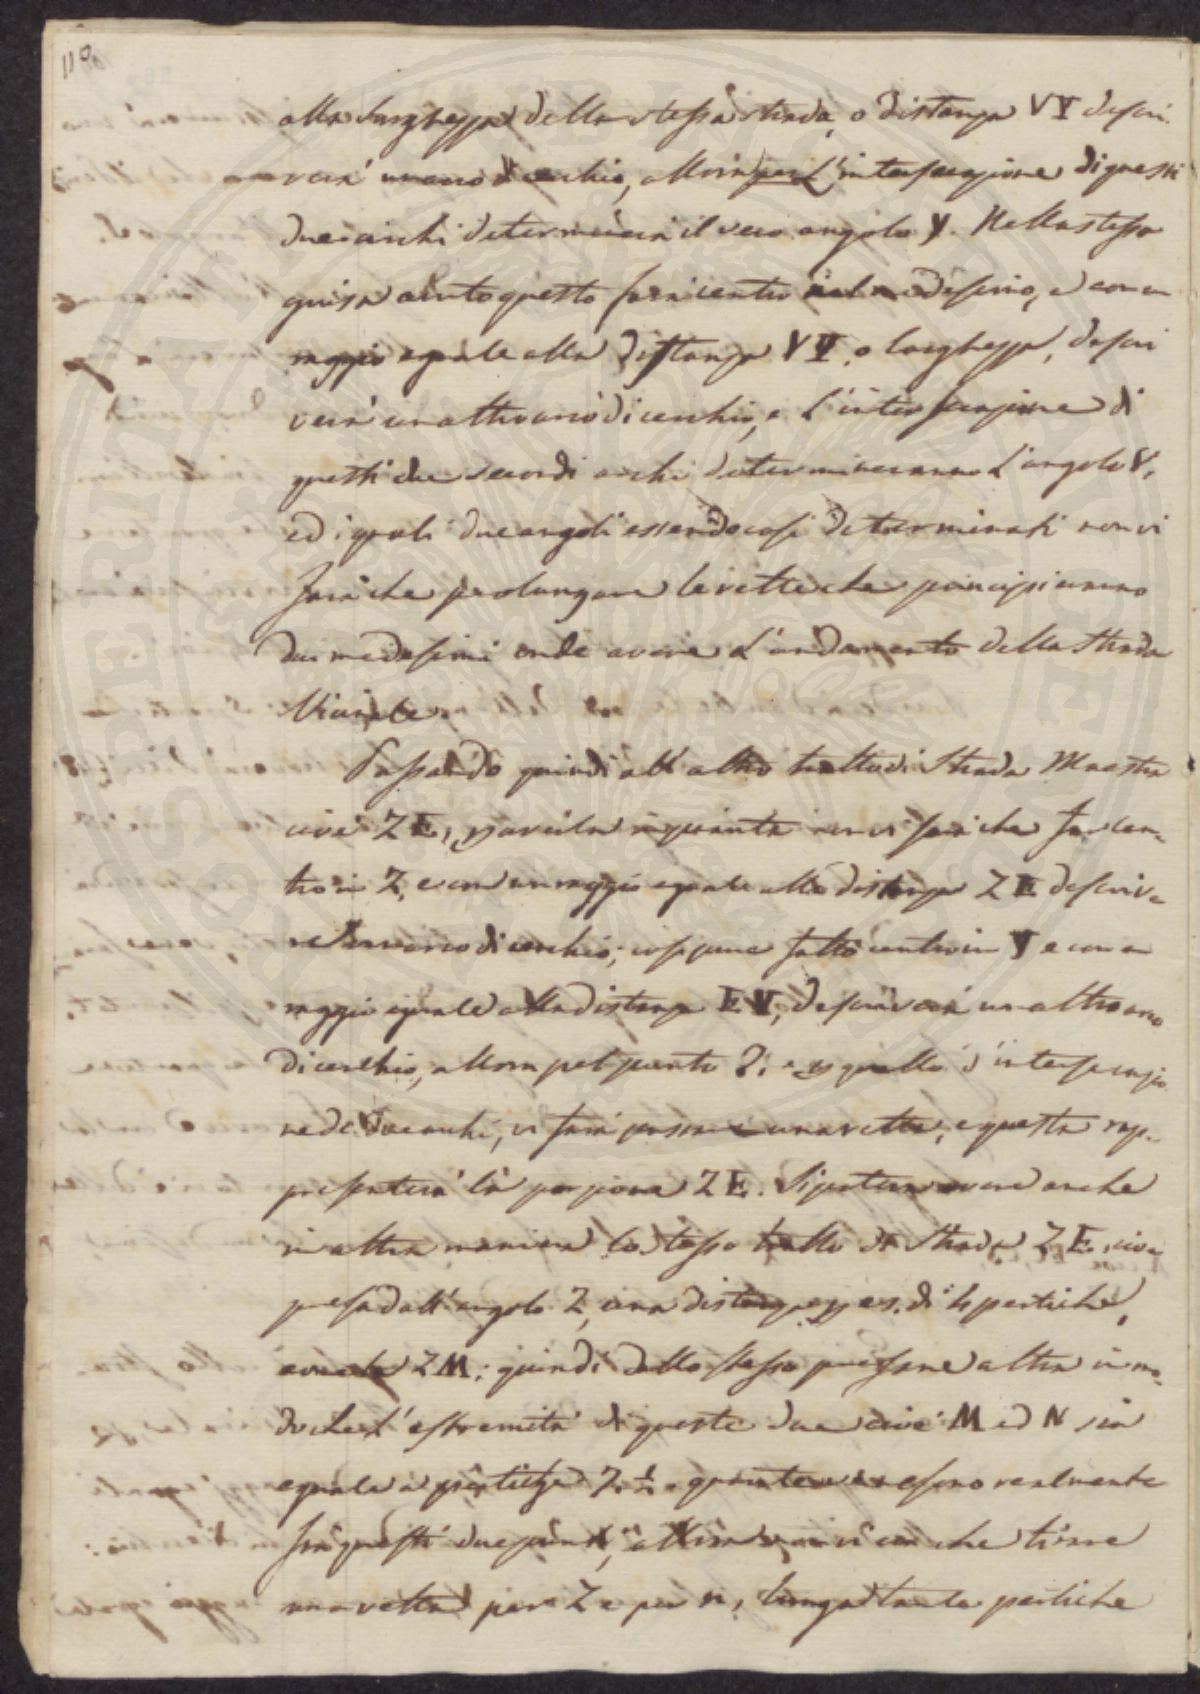 110
alla larghezza della stessa strada, o distanza VY descri
verà un arco di cerchio, allora per l'intersecazione di questi
due archi determinerà il vero angolo Y. Nella stessa
guisa avuto questo farà centro nel medesimo, e con un
raggio eguale alla distanza YV, o larghezza, descri
verà un altro arco di cerchio, e l'intersecazione di
questi due secondi archi determineranno l'angolo V,
ed i quali due angoli essendo così determinati non vi
sarà che prolungare le rette che principieranno
dai medesimi onde avere l'andamento della Strada
Vicinale.
Passando quindi all'altro tratto di Strada Maestra
cioè ZE, per averla in pianta non vi sarà che far cen-
tro in Z, e con un raggio eguale alla distanza ZE descrive
re un arco di cerchio; così pure fatto centro in Y e con un
raggio eguale alla distanza EY, descriverà un altro arco
di cerchio, allora pel punto Z, e per quello d'intersecazio
ne de' due archi, vi farà passare una retta, e questa rap-
presenterà la porzione ZE. Si poteva avere anche
in altra maniera lo stesso tratto di strada ZE, cioè
presa dall'angolo Z, una distanza p. es. di 4 pertiche,
ZM; quindi dallo stesso prendere altra in mo-
do che l'estremità di queste due cioè M ed N sia
eguale a pertiche 7. ½. quante ve ne sono realmente
fra questi due punti, allora non vi era che tirare
una retta per Z e per n, lunga tante pertiche